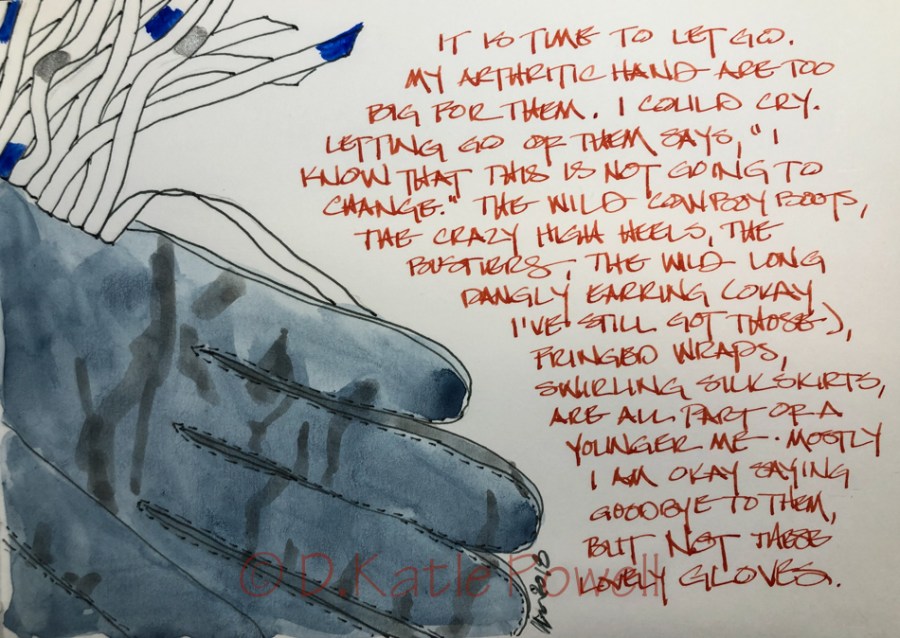 IT IS TIME TO LET GO.
MY ARTHRITIC HAND ARE TOO
BIG FOR THEM. I COULD CRY.
LETTING GO OF THEM SAYS, "I
KNOW THAT THIS IS NOT GOING TO
CHANGE." THE WILD COWBOY BOOTS,
THE CRAZY HIGH HEELS, THE
BUSTIERS, THE WILD LONG
DANGLY EARRING (OKAY
I'VE STILL GOT THOSE),
FRINGED WRAPS,
SWIRLING SILK SKIRTS,
ARE ALL PART OF A
YOUNGER ME. MOSTLY
I AM OKAY SAYING
GOODBYE TO THEM,
BUT NOT THESE
LOVELY GLOVES.
© D.Katie Powell